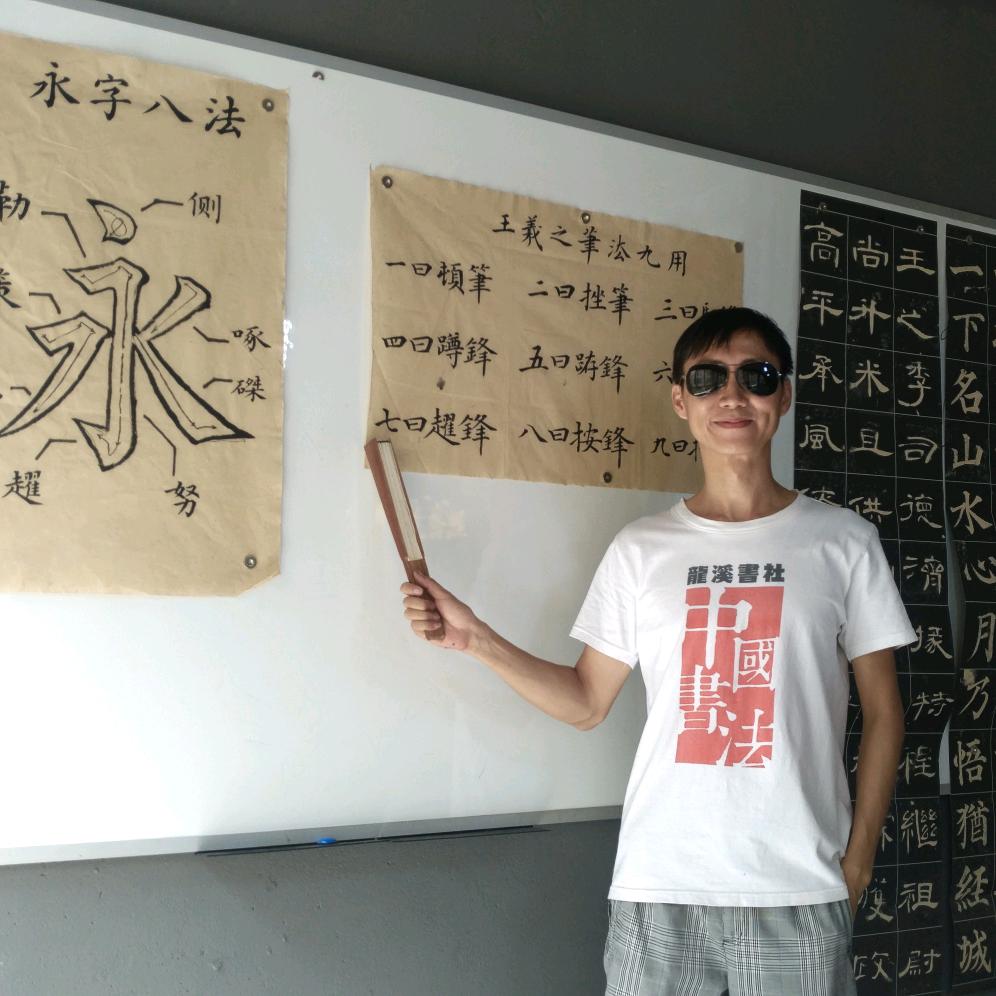 永字八法
勒
侧
啄
磔
趯
努
王羲之筆法九用
一曰頓筆 二曰挫筆 三曰
四曰蹲鋒 五曰跸鋒 六
七曰趯鋒 八曰按鋒 九曰
永
龍溪書社
中國
書法
高平承風
尚升米且供
王之李司德濟
特程繼祖尉
一下名山水心月乃悟猶経城